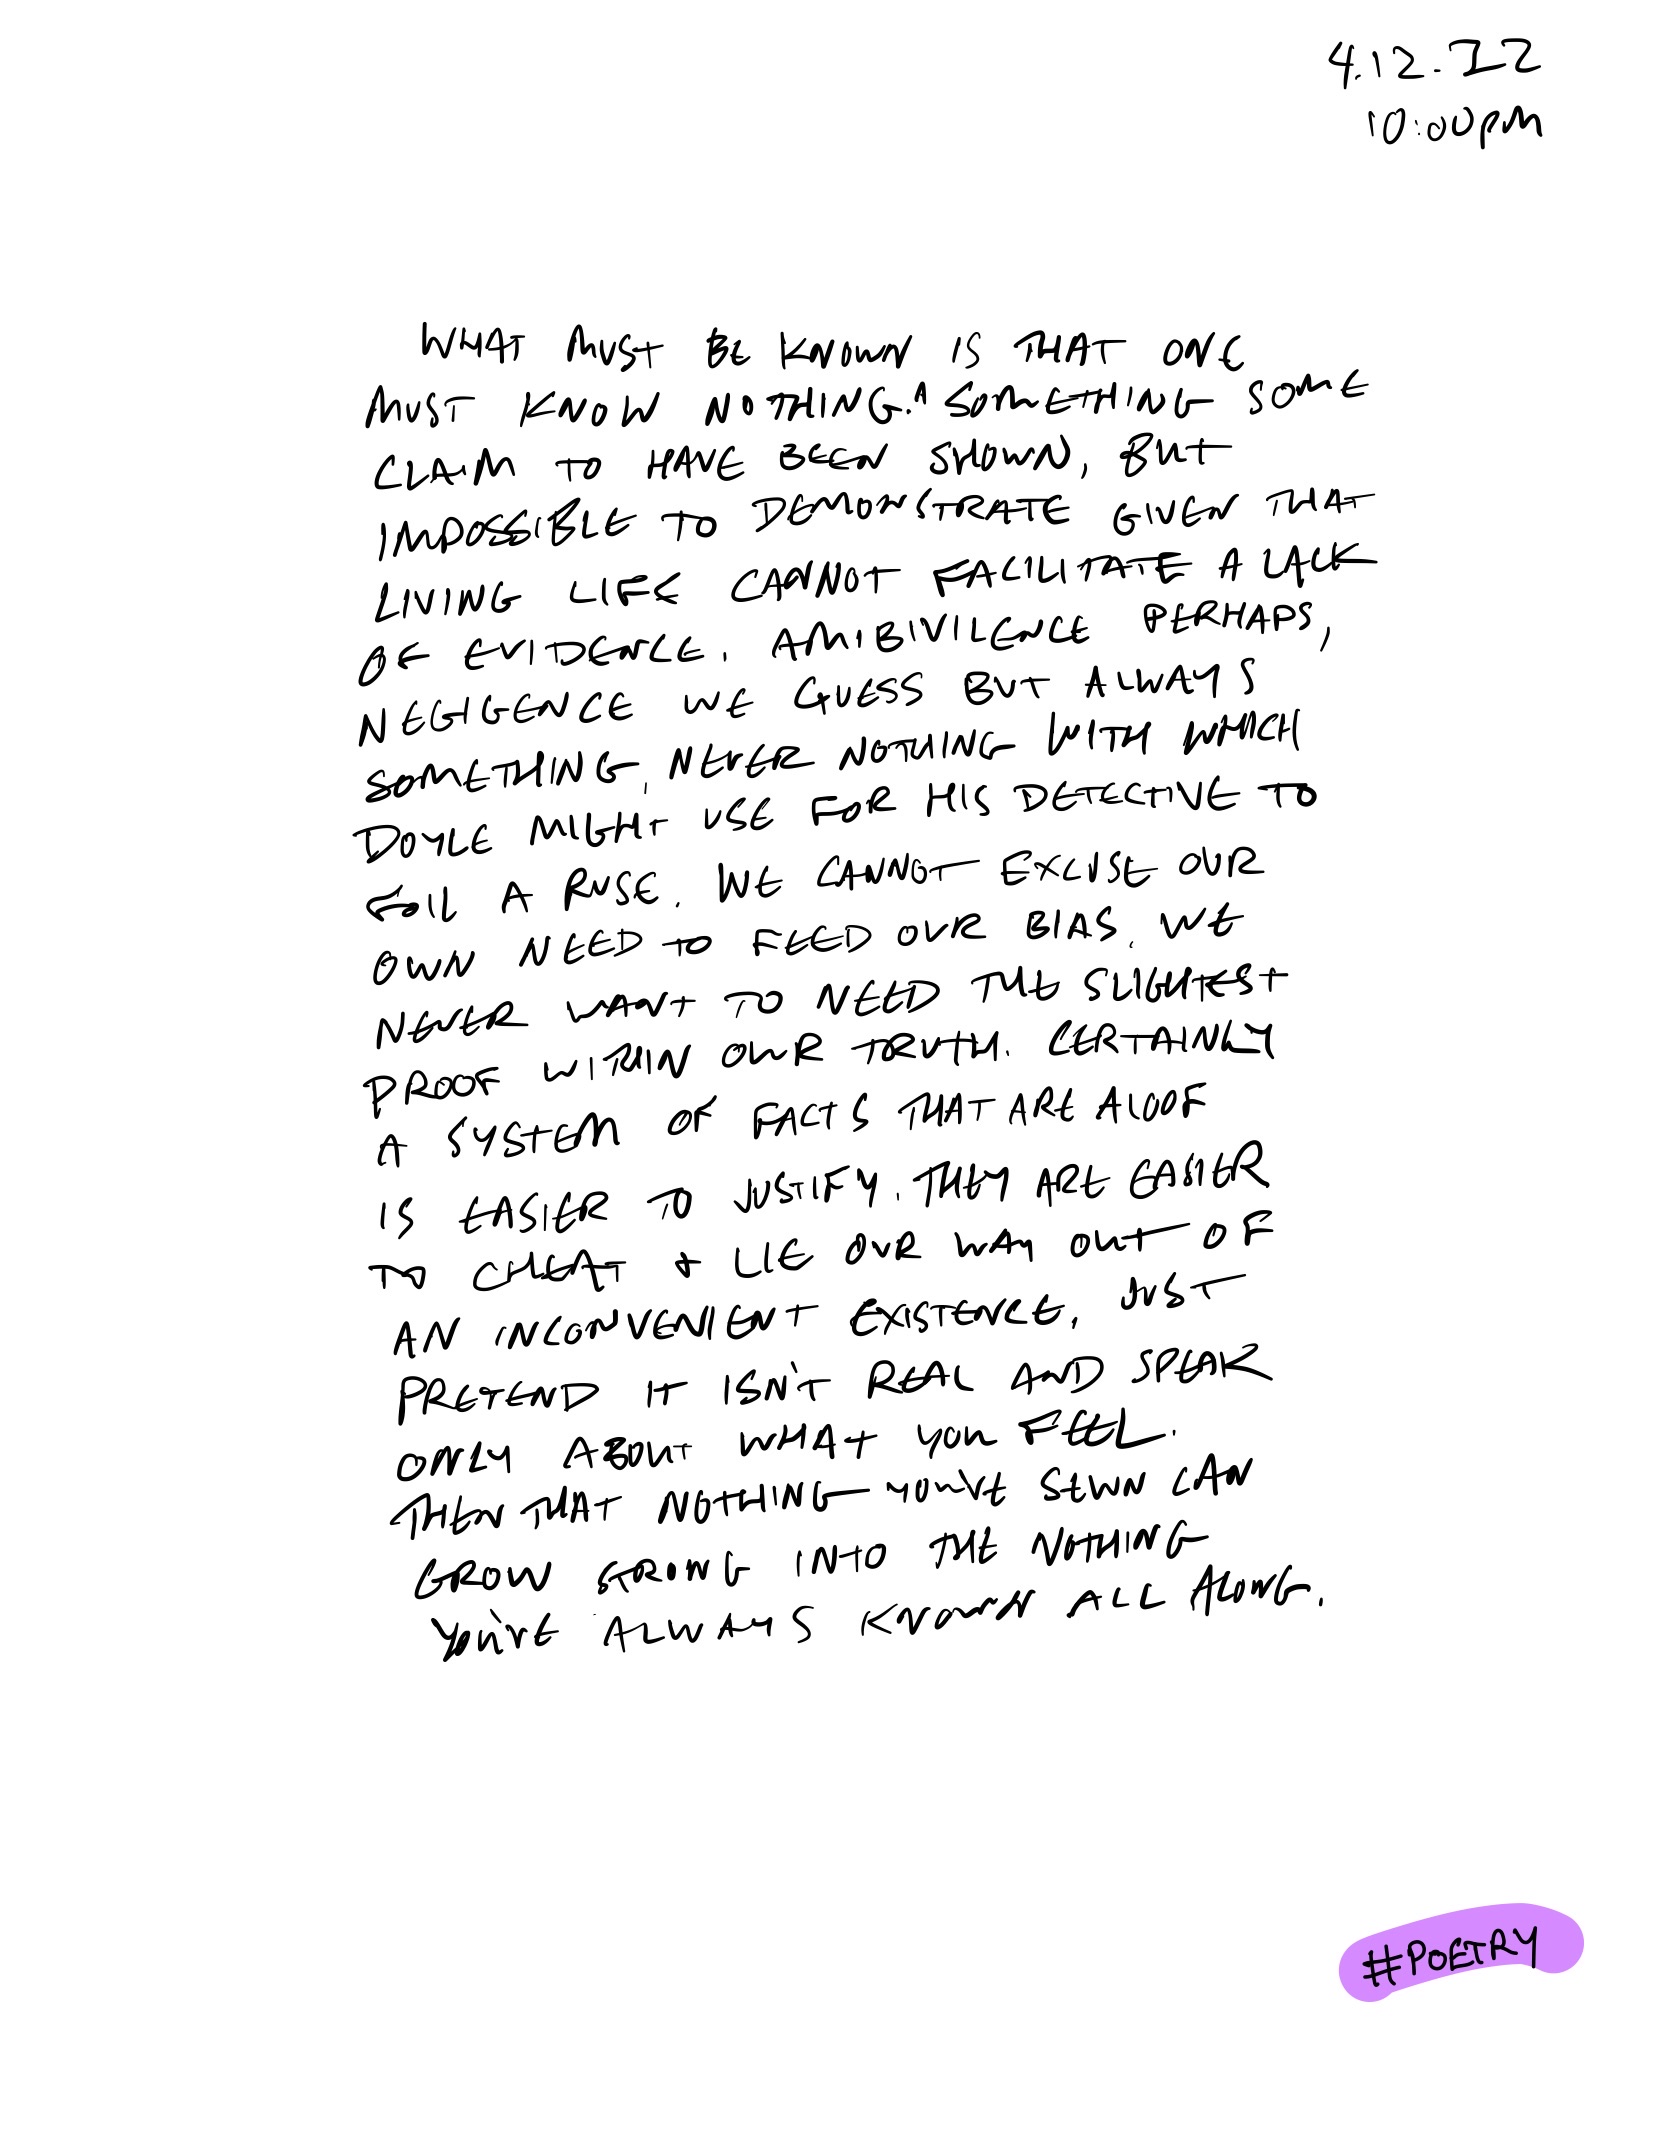 4.12.22
10:00PM
WHAT MUST BE KNOWN IS THAT ONE
MUST KNOW NOTHING. A SOMETHING SOME
CLAIM TO HAVE BEEN SHOWN, BUT
IMPOSSIBLE TO DEMONSTRATE GIVEN THAT
LIVING LIFE CANNOT FACILITATE A LACK
OF EVIDENCE. AMIBIVILENCE PERHAPS,
NEGIGENCE WE GUESS BUT ALWAYS
SOMETHING, NEVER NOTHING WITH WHICH
DOYLE MIGHT USE FOR HIS DETECTIVE TO
FOIL A RUSE. WE CANNOT EXCUSE OUR
OWN NEED TO FEED OUR BIAS. WE
NEVER WANT TO NEED THE SLIGHTEST
PROOF WITHIN OUR TRUTH. CERTAINLY
A SYSTEM OF FACTS THAT ARE ALOOF
IS EASIER TO JUSTIFY. THEY ARE EASIER
TO CHEAT & LIE OUR WAY OUT OF
AN INCONVENIENT EXISTENCE. JUST
PRETEND IT ISN'T REAL AND SPEAK
ONLY ABOUT WHAT YOU FEEL.
THEN THAT NOTHING YOU'VE SEWN CAN
GROW STRONG INTO THE NOTHING
YOU'VE ALWAYS KNOWN ALL ALONG.
#POETRY